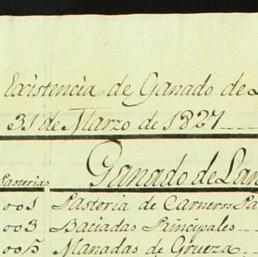 Existencia de Ganado de L
31 de Marzo de 1827
Ganado de Lan
Pastorias
001 Pastoria de Carneros Pa
003 Baciadas Principales
005 Manadas de Grueza